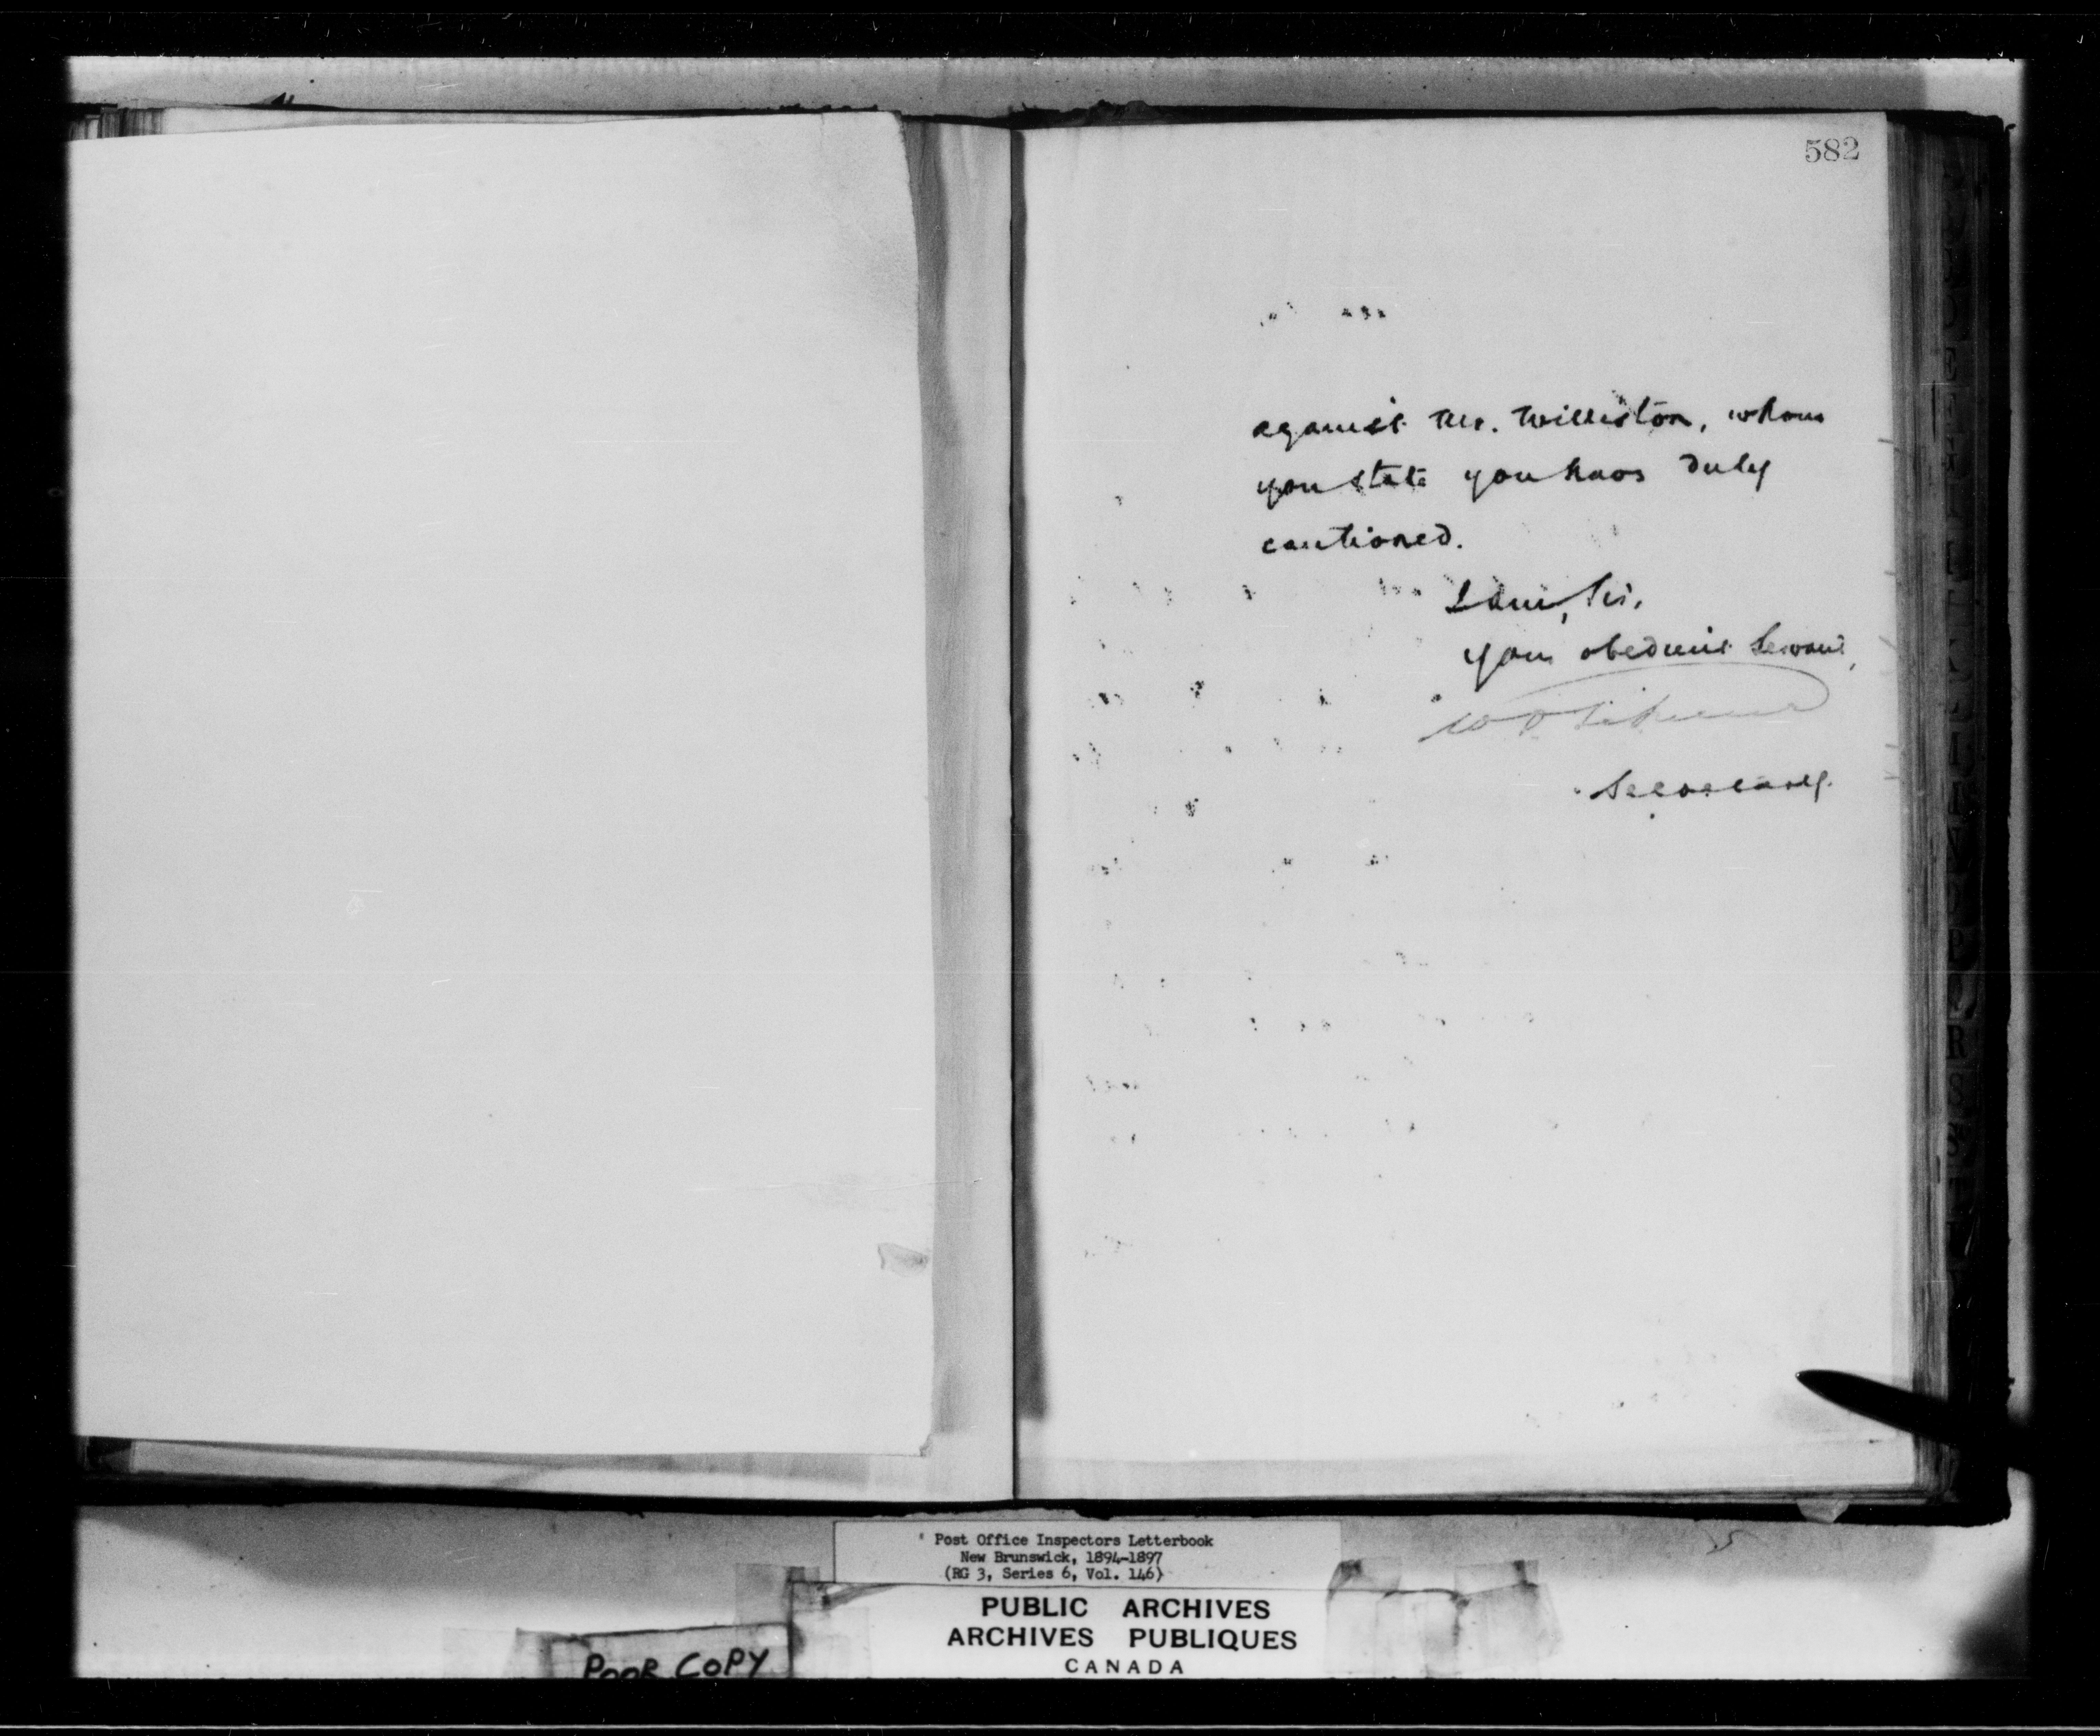 582
against Mr. Williston, whom
you state you have duly
cautioned.
I am, Sir,
Your obedient Servant,
Secretary.
Post Office Inspectors Letterbook
New Brunswick, 1894-1897
(RG 3, Series 6, Vol. 146)
PUBLIC ARCHIVES
ARCHIVES PUBLIQUES
CANADA
POOR COPY